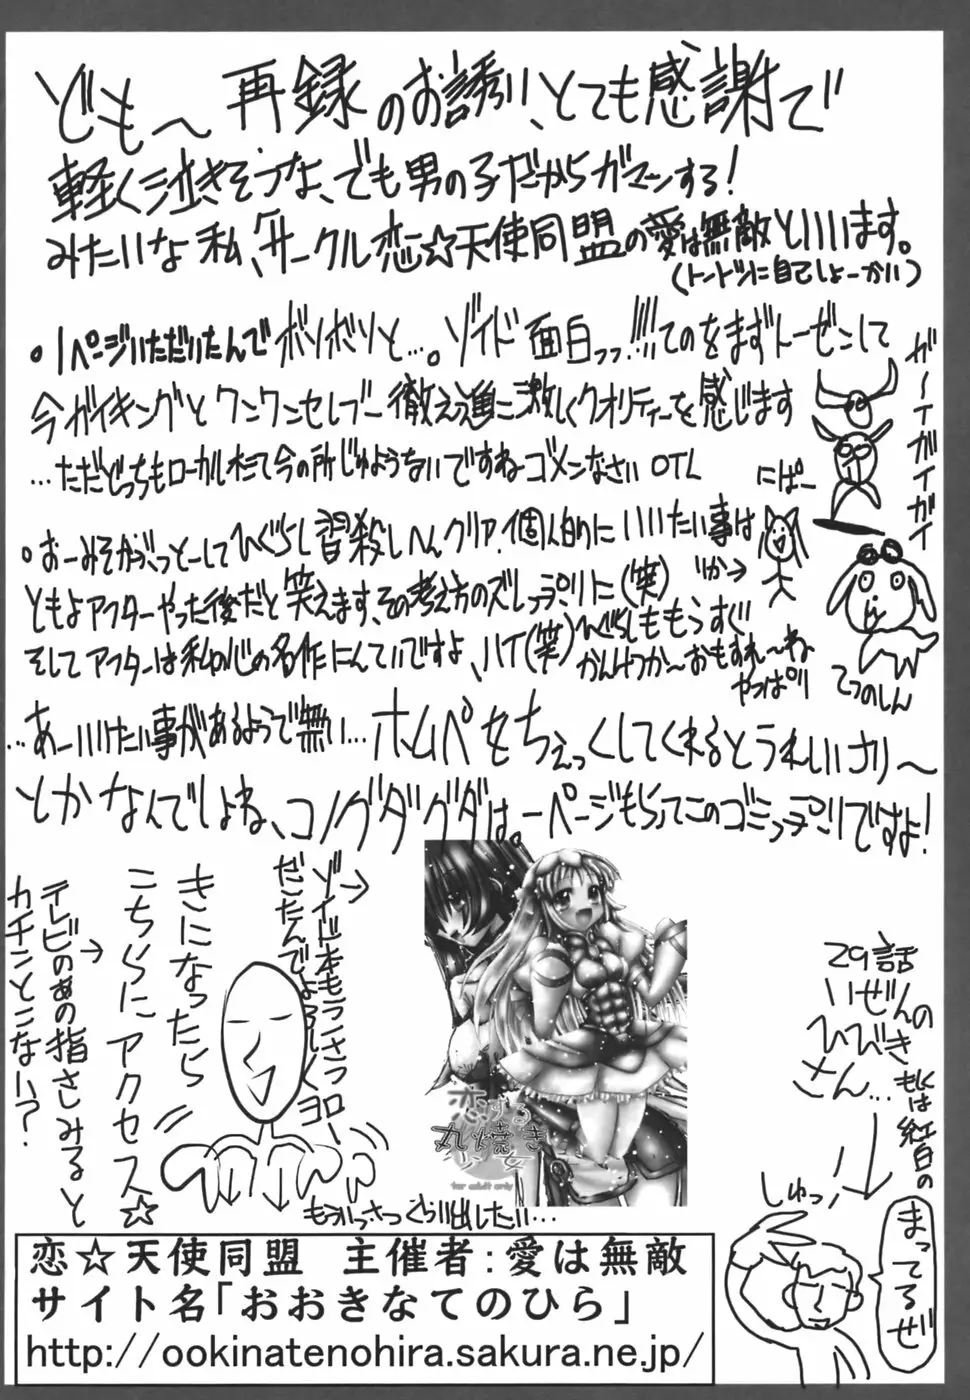 ども〜再録のお誘い、とても感謝で
軽く泣きそうな、でも男の子だからガマンする！
みたいな私、サークル恋☆天使同盟の愛は無敵といいます。
(トートツに自己しょーかい)
・1ページいただいたんでボソボソと…。ゾイド面白っっ!!!!てのをまずトーゼンして
今ガイキングとワンワンセレプー徹え道に激しくクオリティーを感じます
…ただどっちもローカルネタで今の所じゅようないですねゴメンなさい OTL
・おーみそかぶっとーしてひぐらし皆殺しへんクリア、個人的にいいたい事は
ともよアフターやった後だと笑えます、その考え方のズレっプリに(笑)
そしてアフターは私の心の名作にんていですよ、ハイ(笑)
ひぐらしももうすぐ
かんけつか〜おもすれ〜ね
やっぱり
…あーいいたい事があるようで無い…ホムペをちぇっくしてくれるとうれしいさり〜
とかなんでしょね、コノグダグダは。一ページもらってこのゴミっプリですよ！
ガーイガイガイ
にぱー
りか→
てつのしん
ゾイド本もうさうさ
だしたんでよろしくヨロー
きになったら
こちらにアクセス☆
テレビのあの指さしみると
カチンとこない？
もういっさつぐらい出したい…
恋する
丸焼き
乙女
for adult only
29話
いぜんの
ひびき
さん…
もしくは紅白の
しゅっ！
まってるぜ
恋☆天使同盟　主催者：愛は無敵
サイト名「おおきなてのひら」
http://ookinatenohira.sakura.ne.jp/